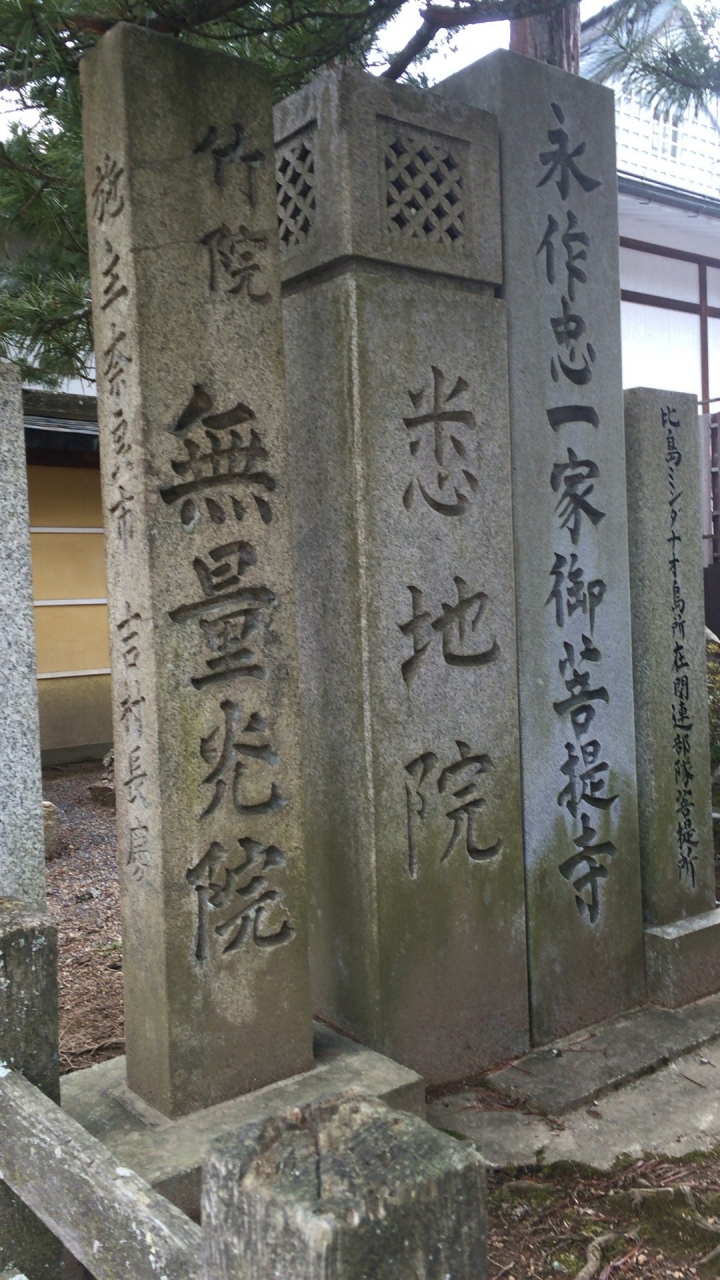 比島ミンダナオ島所在関連部隊菩提所
永作忠一家御菩提寺
悉地院
竹院
無量光院
施主奈良市 吉村長慶